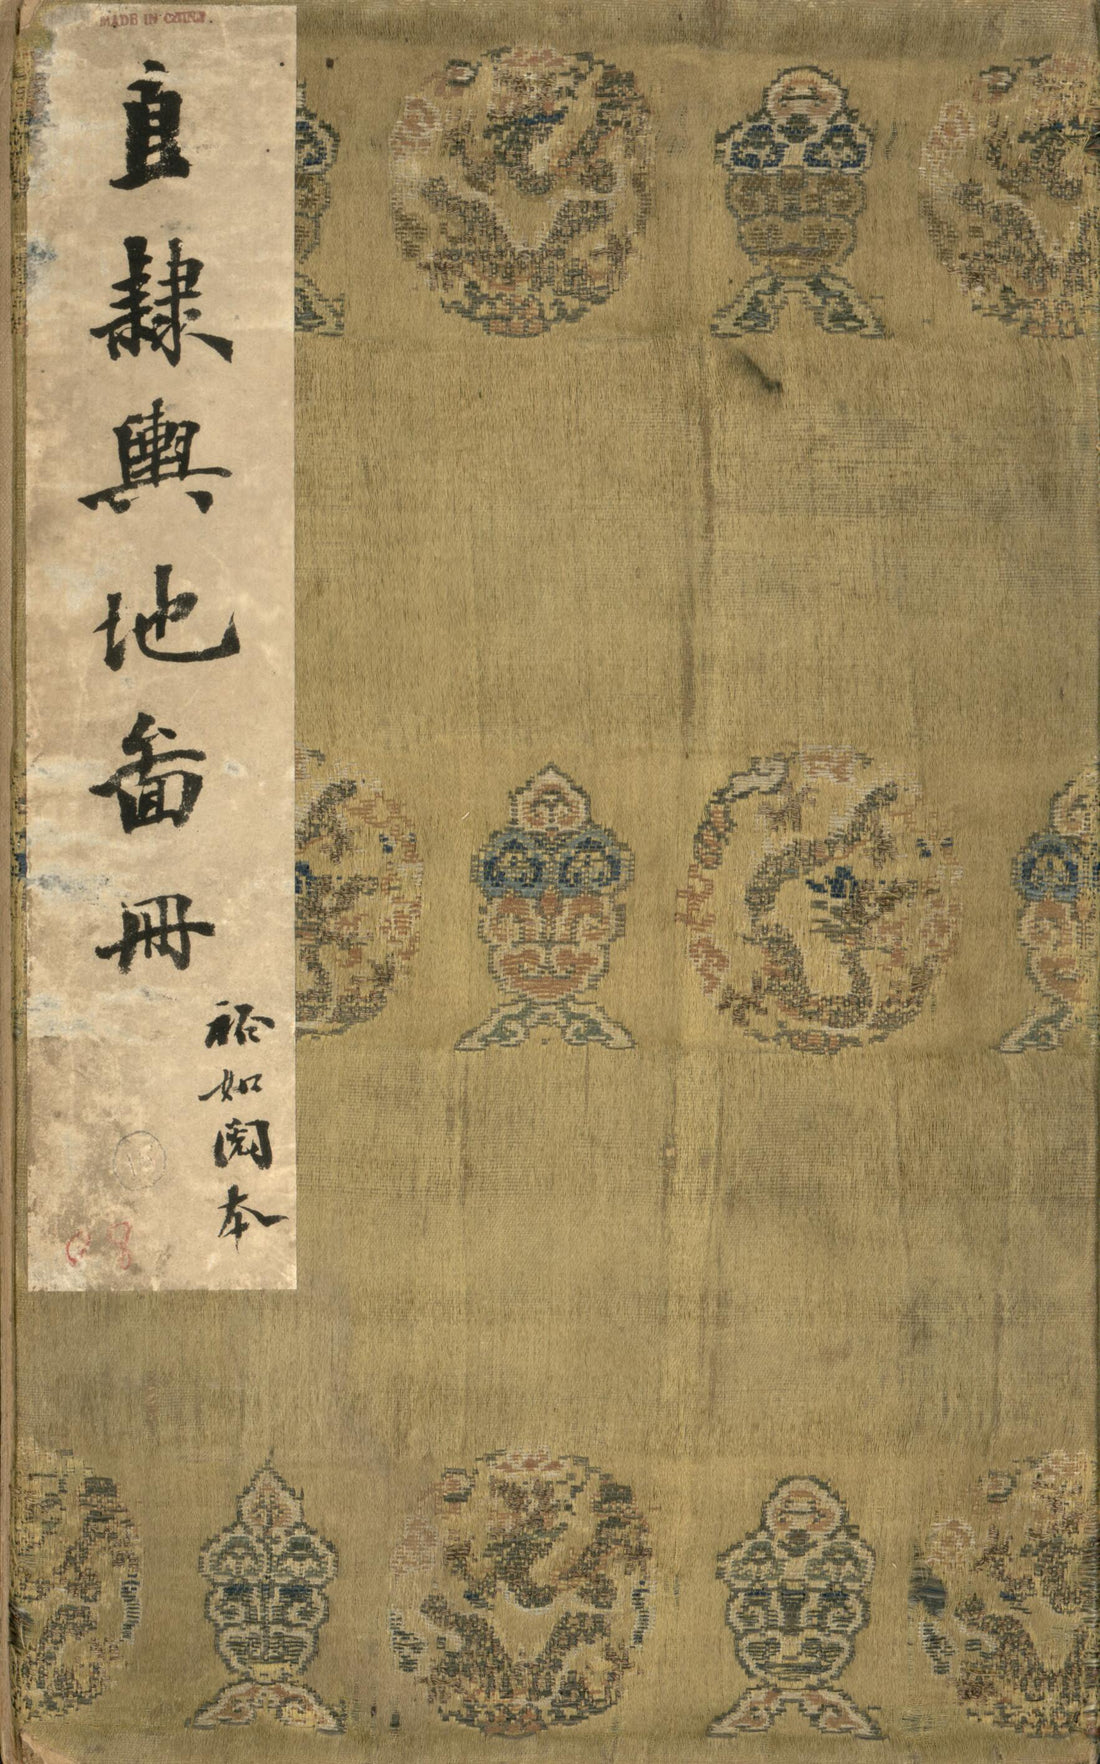 MADE IN CHINA.
直隸輿地啚冊
裕如閱本